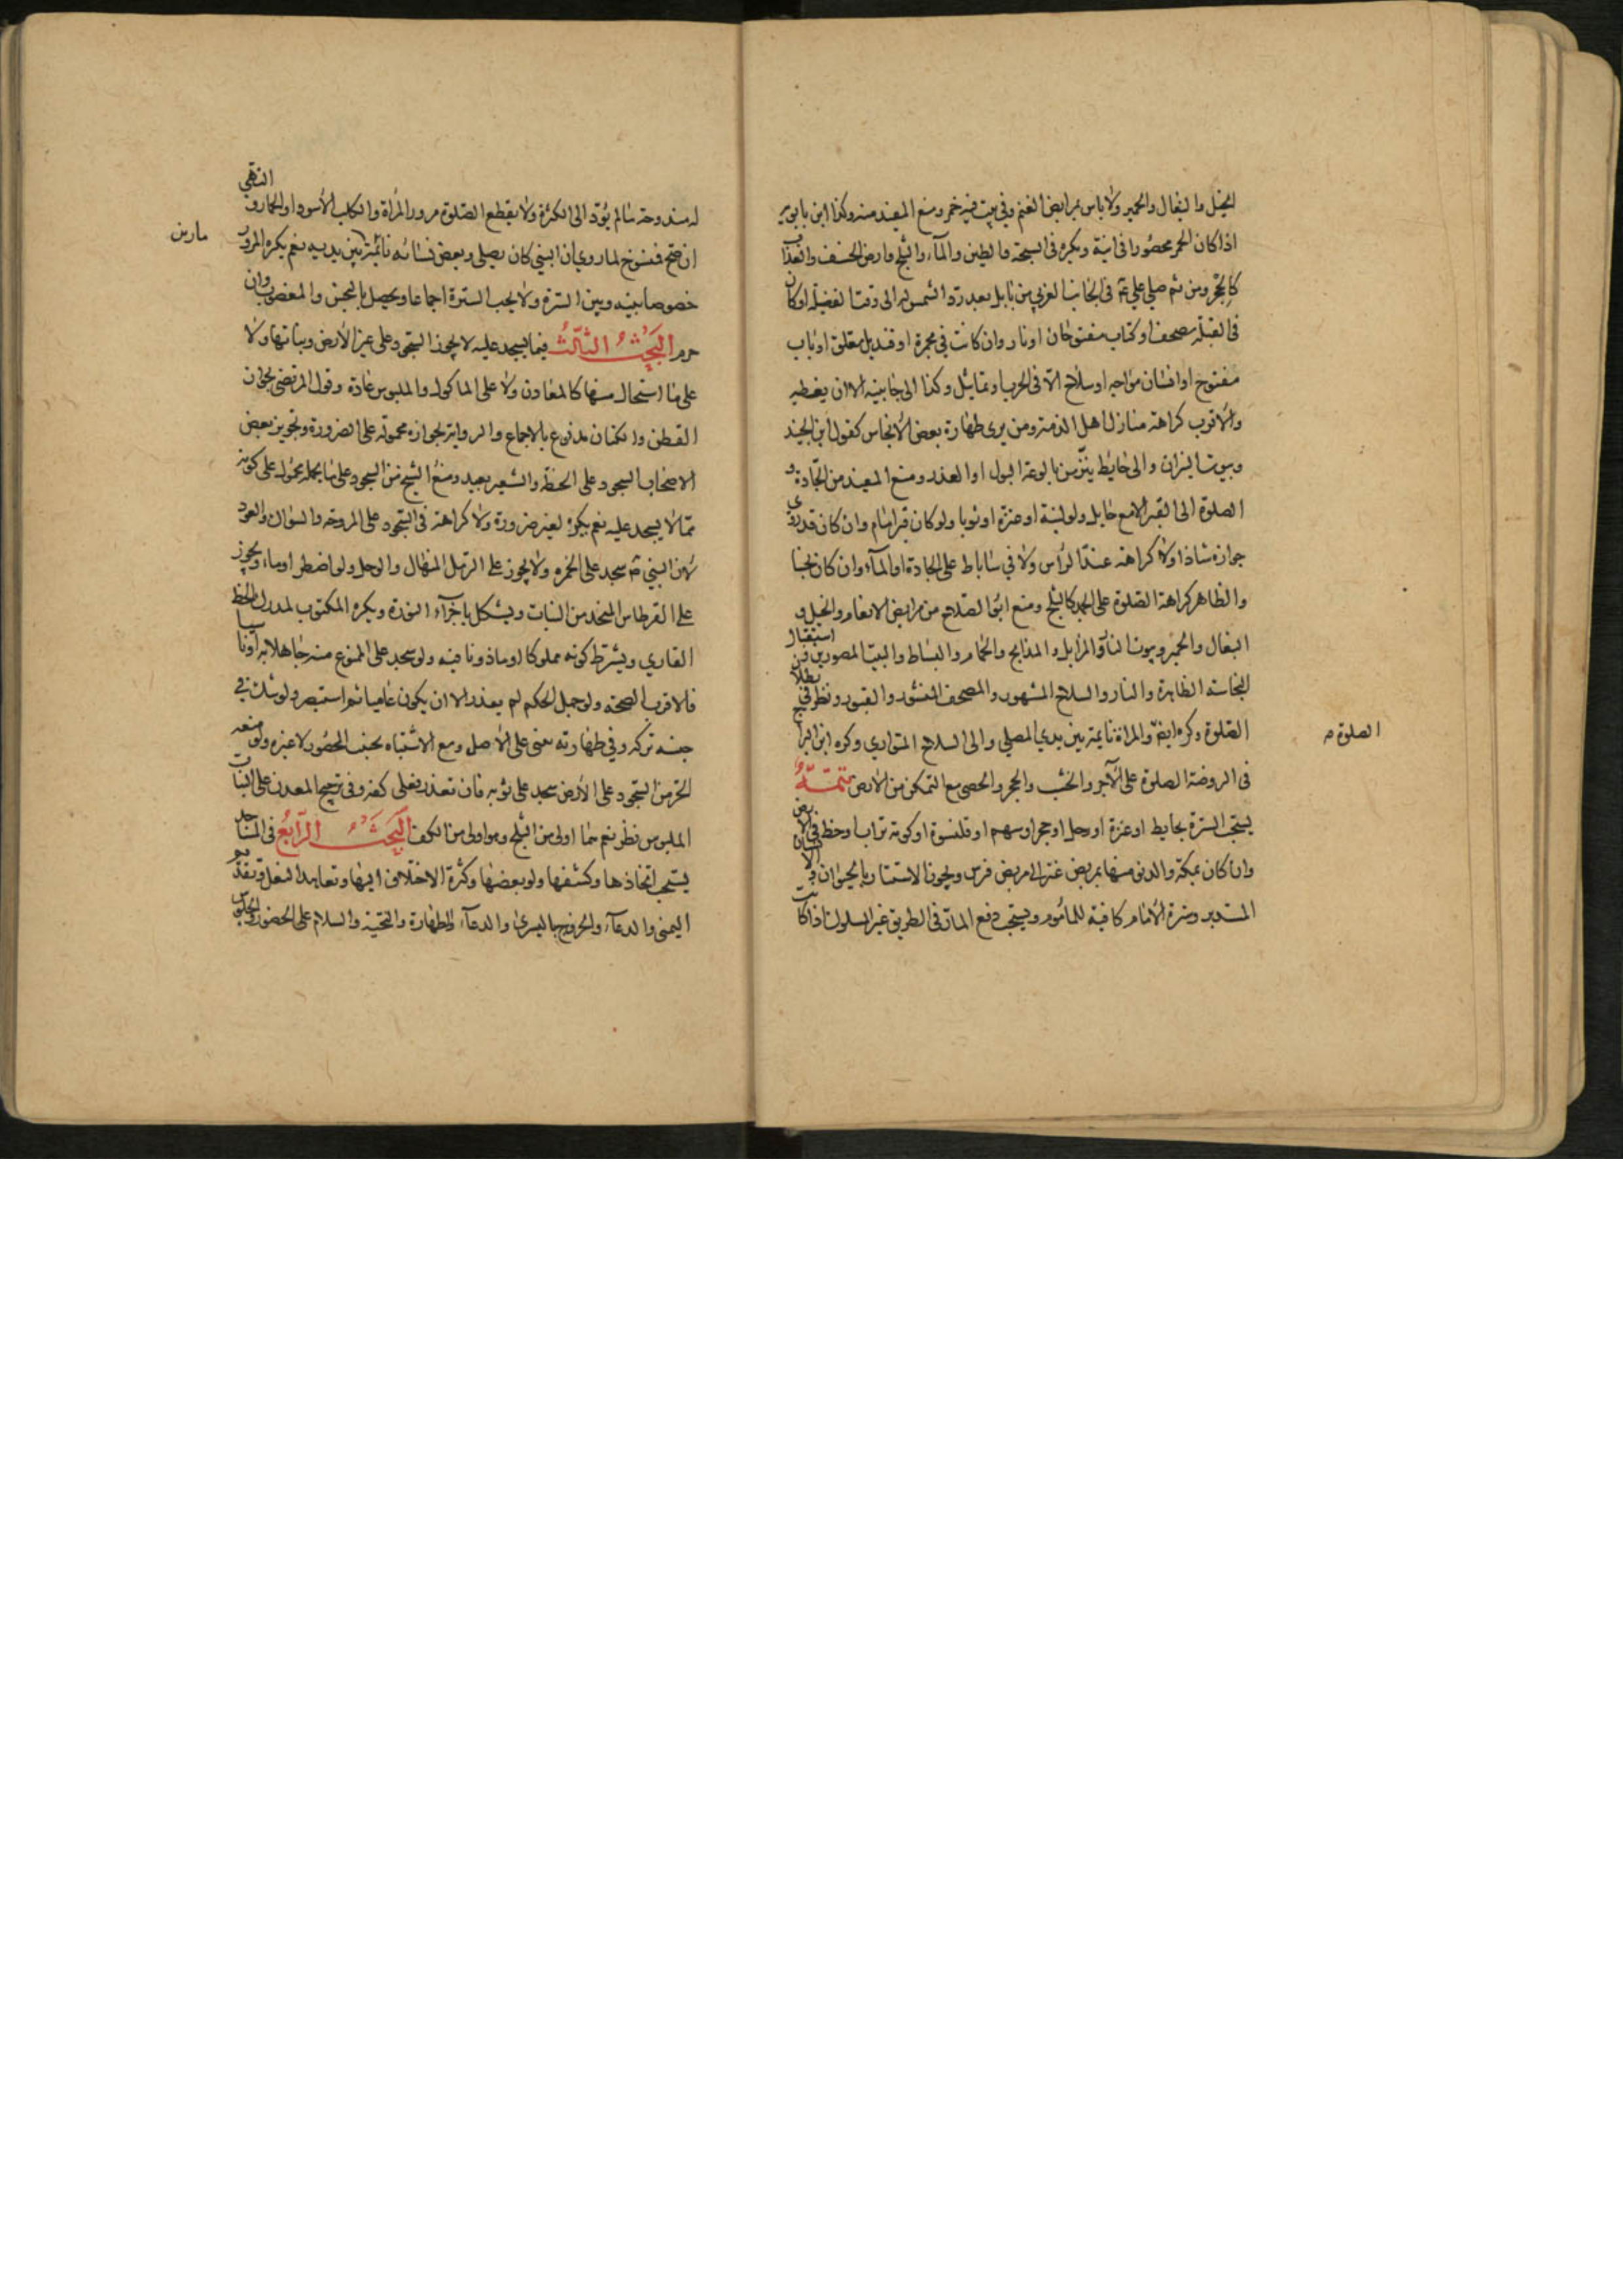 الخيل والبغال والحمير ولا باس بمرابض الغنم وفي بيت فيه خمر ومنع المفيد منه وكذا ابن بابويه
اذا كان الخمر محصورا في انية ويكره في السبخة والطين والماء والثلج وارض الخسف والعذاب
كالحجر ومن ثم صلى علي ع في الجانب الغربي من بابل بعد رد الشمس له الى وقت الفضيلة او كان
في القبلة مصحف او كتاب مفتوحان او نار وان كانت في مجمرة او قنديل معلق او باب
مفتوح او انسان مواجه او سلاح الا في الحرب او تماثيل وكذا الى جانبيه الا ان يغطيه
والاقرب كراهة منازل اهل الذمة ومن يرى طهارة بعض الانجاس كقول ابن الجنيد
وبيوت النيران والى حايط ينز من بالوعة البول او العذرة ومنع المفيد من الجادة و
الصلوة الى القبر الا مع حايل ولو لبنة او عنزة او ثوبا ولو كان قبر امام وان كان قد روي
جوازه شاذا ولا كراهة عند الراس ولا في ساباط على الجادة او الماء وان كان نجسا
والظاهر كراهة الصلوة على الجمد كالثلج ومنع ابو الصلاح من مرابض الانعام والخيل و
البغال والحمير وبيوت النار والمزابل والمذابح والحمام والبساط والبيت المصورين ومن استقبال
النجاسة الظاهرة والنار والسلاح المشهور والمصحف المنشور والقبور ونظر في بطلان
الصلوة وكره ايض والمراة نايمة بين يدي المصلي والى السلاح المتواري وكره ابن البراج
الصلوة م
في الروضة الصلوة على الاجر والخشب والحجر والحصى مع التمكن من الارض تتمة
يستحب السترة بحايط او عنزة او رحل او حجر او سهم او قلنسوة او كومة تراب او خط في الارض
وان كان بمكة والدنو منها بمربض عنز الى مربض فرس ويجوز الاستتار بالحيوان والانسان
المستدبر وسترة الامام كافية للماموم ويستحب دفع المار في الطريق غير المسلوك اذا كانت
له مندوحة ما لم يؤد الى الكثرة ولا يقطع الصلوة مرور المراة والكلب الاسود او الحمار و النهي
ان صح فمنسوخ لما روي ان النبي كان يصلي وبعض نسائه نائمة بين يديه نعم يكره المرور
مارين
خصوصا بينه وبين السترة ولا يجب السترة اجماعا ويحصل بالنجس والمغصوب وان
حرم البحث الثالث فيما يسجد عليه لا يجوز السجود على غير الارض ونباتها ولا
على ما استحال منها كالمعادن ولا على الماكول والملبوس عادة وقول المرتضى بجواز
القطن والكتان مدفوع بالاجماع والرواية بجوازه محمولة على الضرورة وتجويز بعض
الاصحاب السجود على الحنطة والشعير بعيد ومنع الشيخ من السجود على ما يحمله محمول على كونه
مما لا يسجد عليه نعم يكره لغير ضرورة ولا كراهة في السجود على المروحة والسواك والعود
لان النبي ص سجد على الخمرة ولا يجوز على الرمل المنهال والوحل ولو اضطر اوما ويجوز
على القرطاس المتخذ من النبات ويشكل باجزاء النورة ويكره المكتوب لمدرك الخط
القاري ويشترط كونه مملوكا او ماذونا فيه ولو سجد على الممنوع منه جاهلا به او ناسيا
فالاقرب الصحة ولو جهل الحكم لم يعذر الا ان يكون عاميا ثم استبصر ولو شك في
جنسه تركه وفي طهارته بنى على الاصل ومع الاشتباه يجتنب المحصور لا غيره ولو منعه
الحر من السجود على الارض سجد على ثوبه فان تعذر فعلى كفه وفي ترجيح المعدن على النبات
الملبوس نظر نعم هما اولى من الثلج وهو اولى من الكف البحث الرابع في المساجد
يستحب اتخاذها وكشفها ولو بعضها وكثرة الاختلاف اليها وتعاهد النعل وتقديم
اليمنى والدعاء والخروج باليسرى والدعاء والطهارة والتحية والسلام على الحضور والجلوس